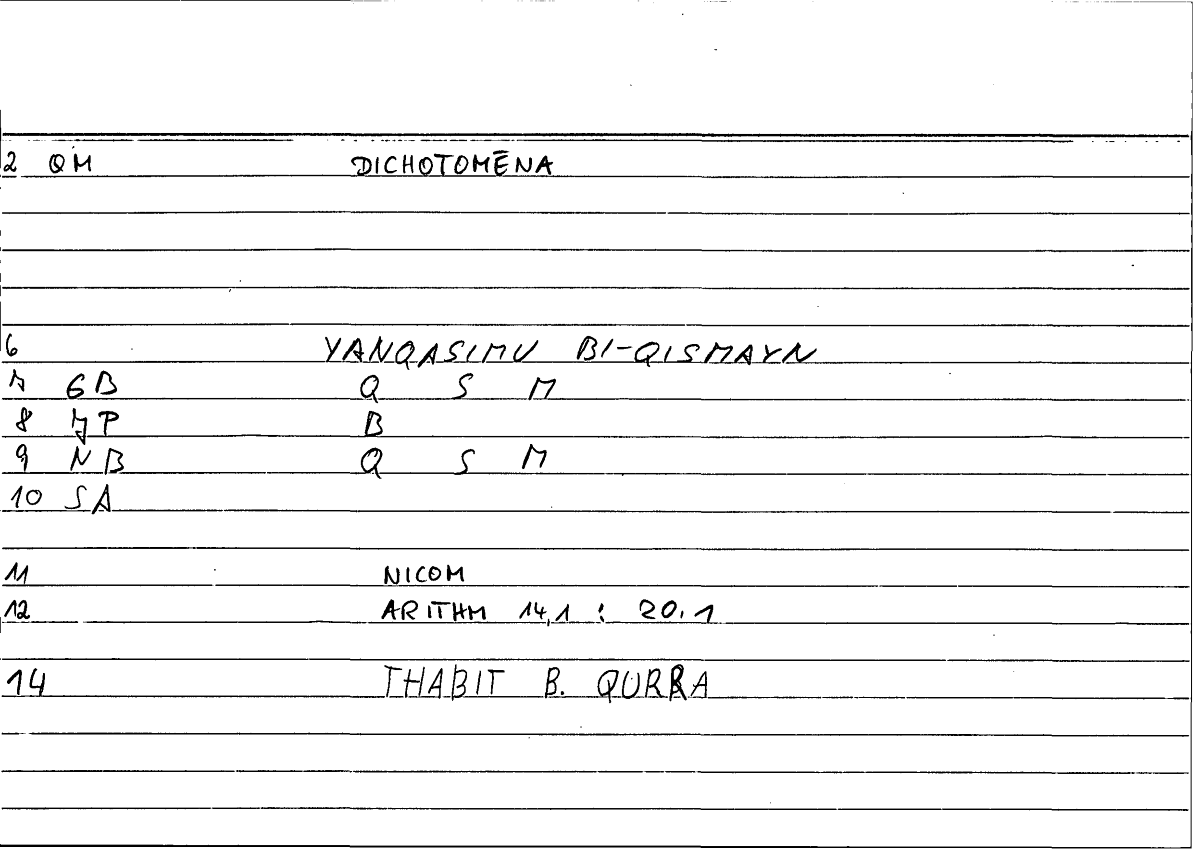 2 QM DICHOTOMĒNA
6 YANQASIMU BI-QISMAYN
7 GB Q S M
8 JP B
9 NB Q S M
10 SA
11 NICOM
12 ARITHM 14,1 : 20.1
14 THABIT B. QURRA